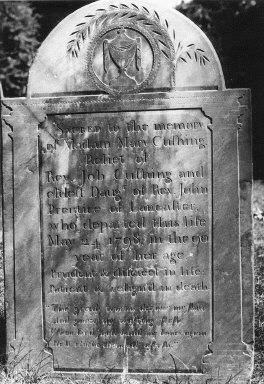 Sacred to the memory
of Madam Mary Cushing
Relict of
Rev. Job Cushing and
eldest Daugr of Rev. John
Prentice of Lancaster,
who departed this life
May 24 1798 in the 90
year of her age
Prudent & discreet in life:
Patient & resigned in death